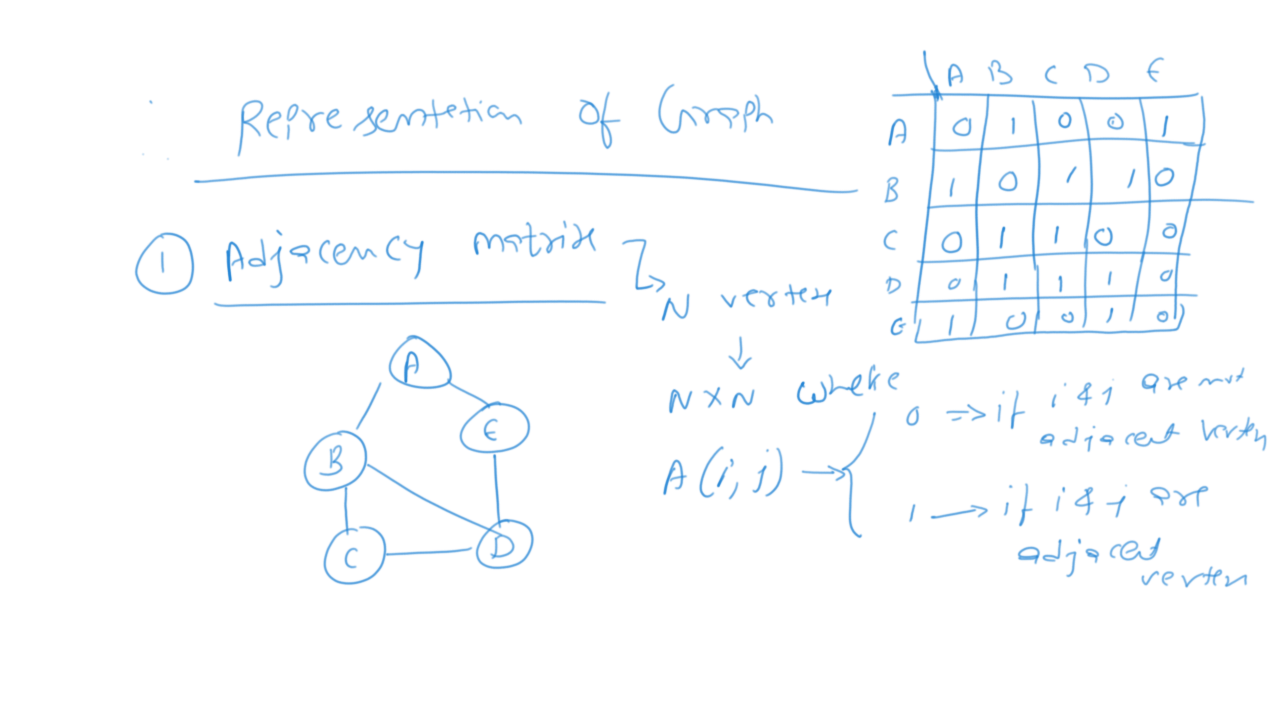 Representetion of Graph
① Adjacency matrix
N vertex
↓
N×N where
A(i, j) →
0 => if i & j are not
adjacent vertex
1 → if i & j are
adjacent
vertex
A B C D E
A 0 1 0 0 1
B 1 0 1 1 0
C 0 1 1 0 0
D 0 1 1 1 0
E 1 0 0 1 0
A
E
B
C
D